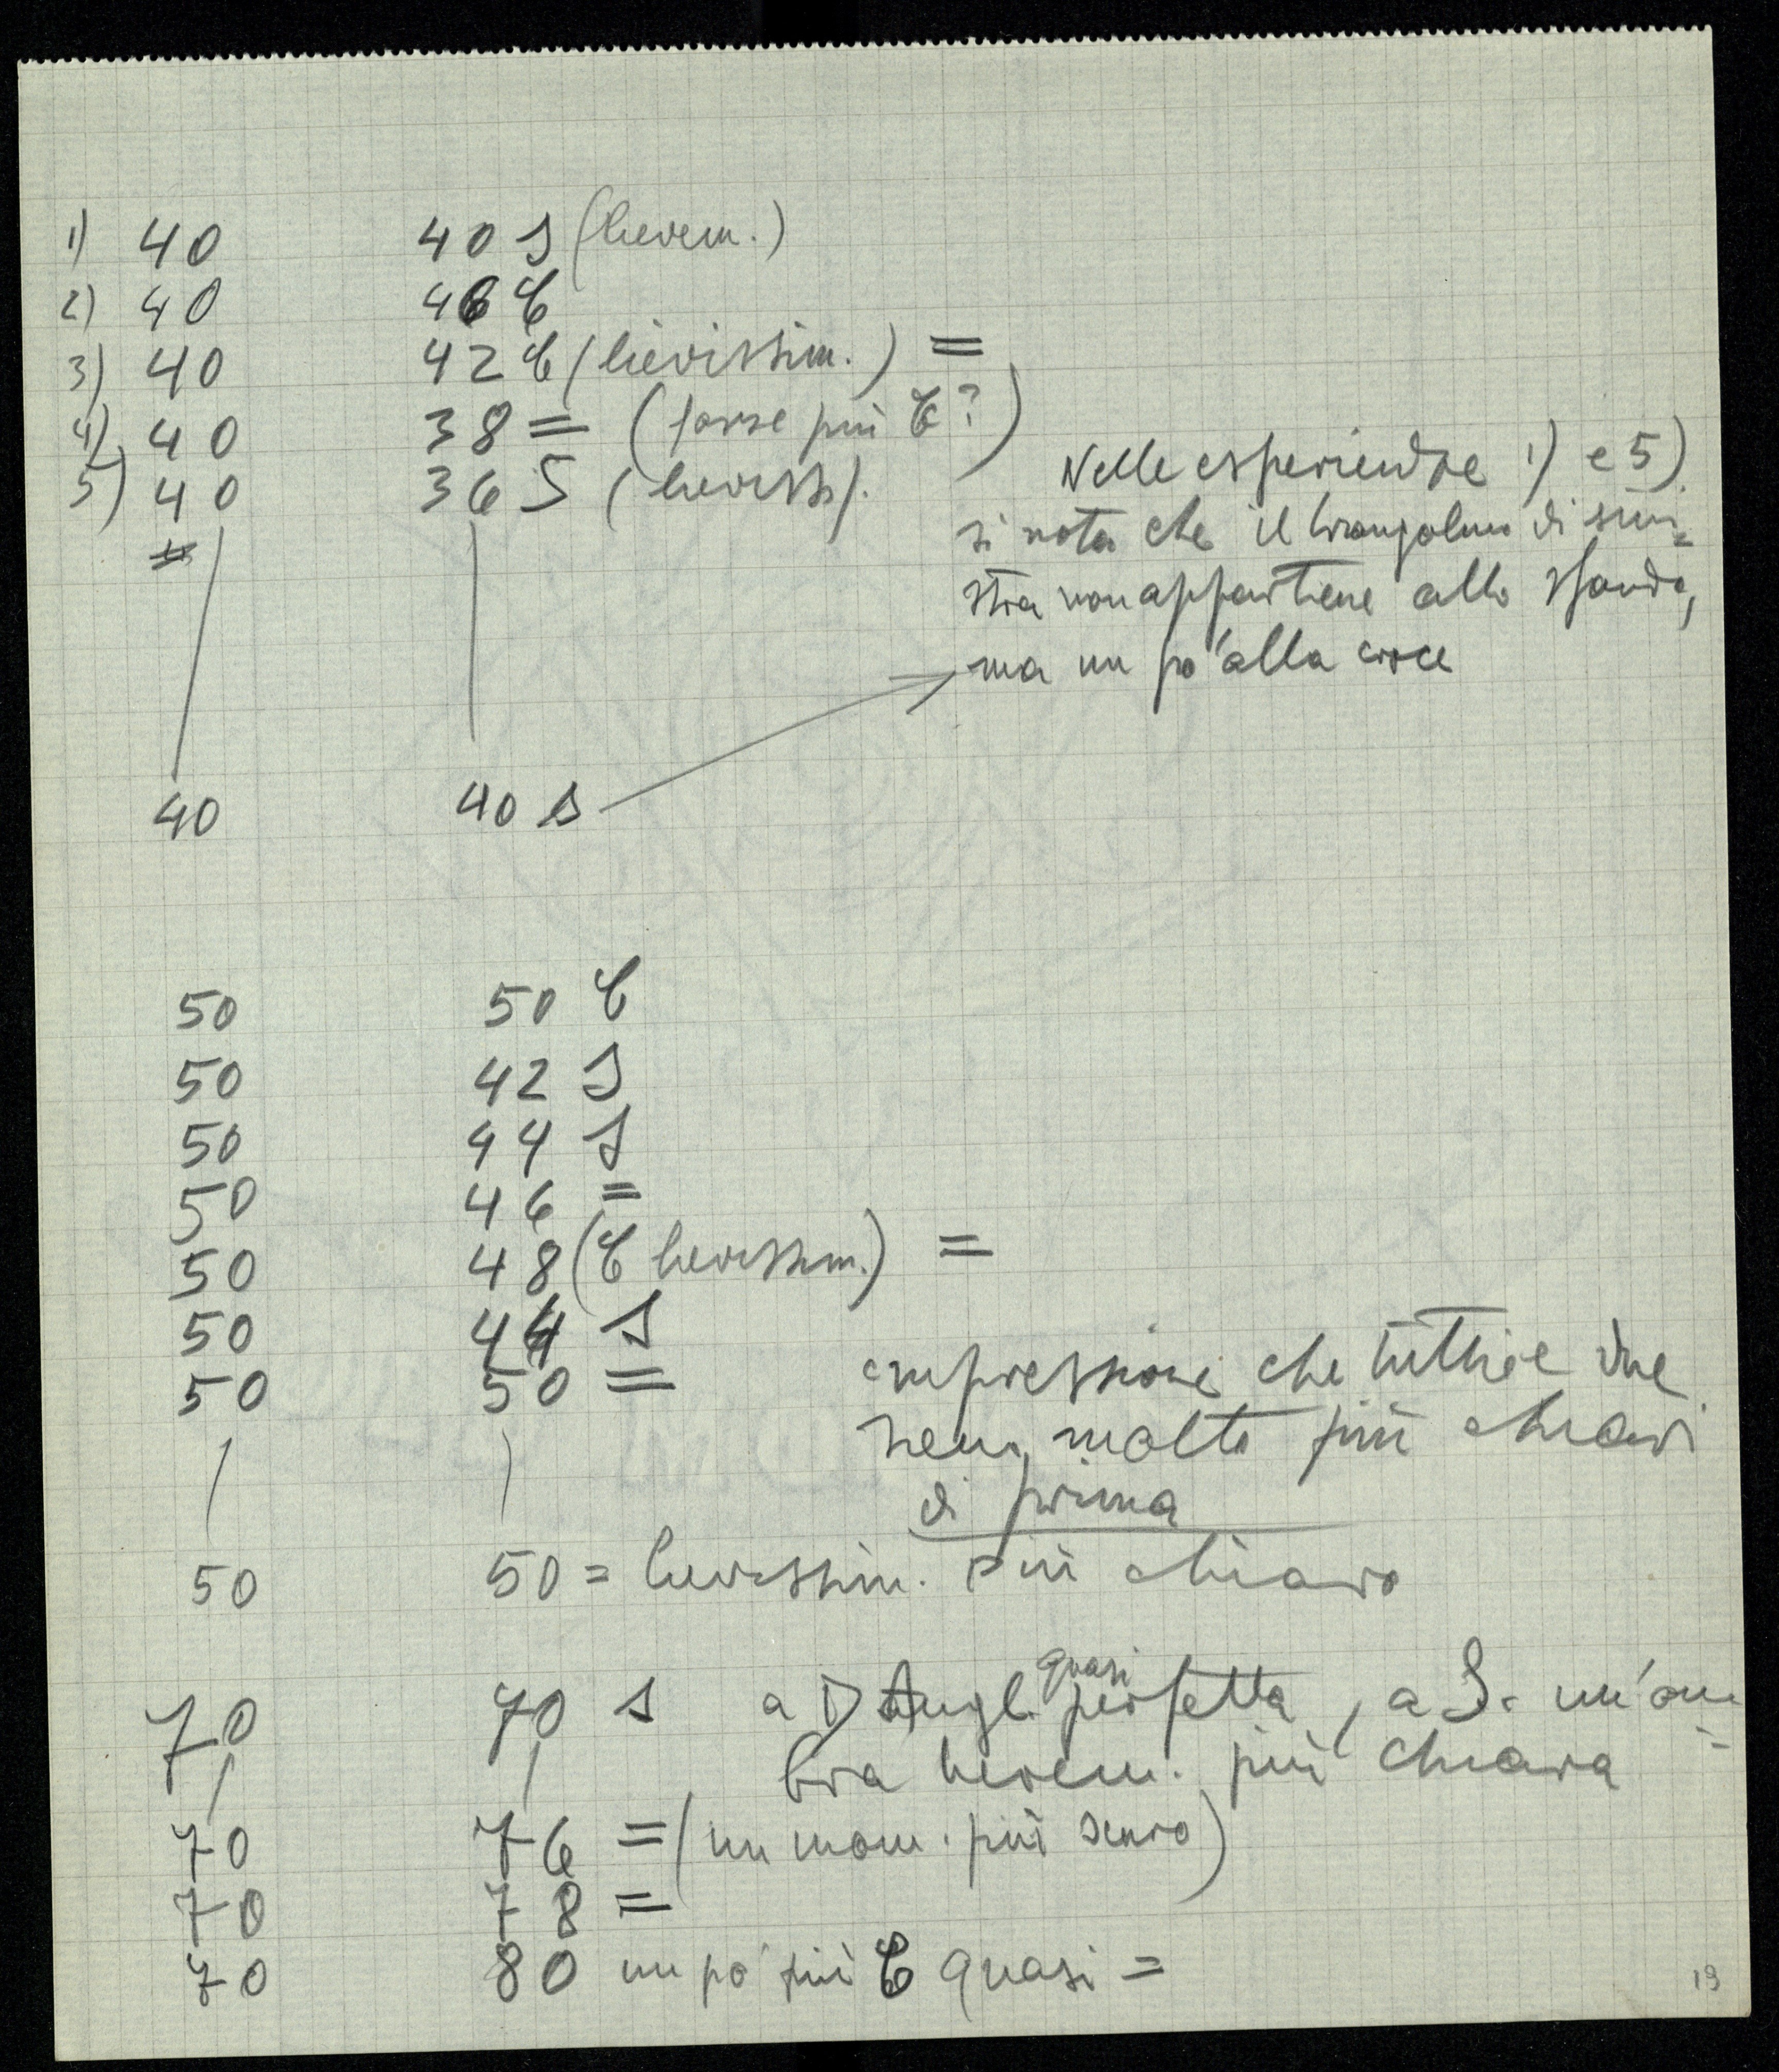 1) 40 40 S (lievem.)
2) 40 46 C
3) 40 42 C (lievissim.) =
4) 40 38 = (forse più C?)
5) 40 36 S (lieviss).
Nelle esperienze 1) e 5)
si nota che il triangolino di sini=
stra non appartiene allo sfondo,
ma un po' alla croce
40 40 S
50 50 C
50 42 S
50 44 S
50 46 =
50 48 (C lievissim.) =
50 44 S
50 50 =
impressione che tutti e due
siano molto più chiari
di prima
50 50 = lievissim. più chiaro
70 70 S a D Augl. quasi perfetta, a S. un'om=
bra lievem. più chiara
70 76 = (un mom. più scuro)
70 78 =
70 80 un po' più C quasi =
19